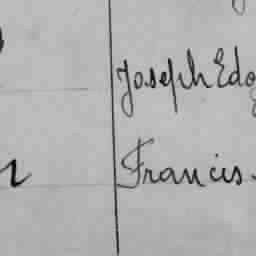 Joseph Edo
Francis.